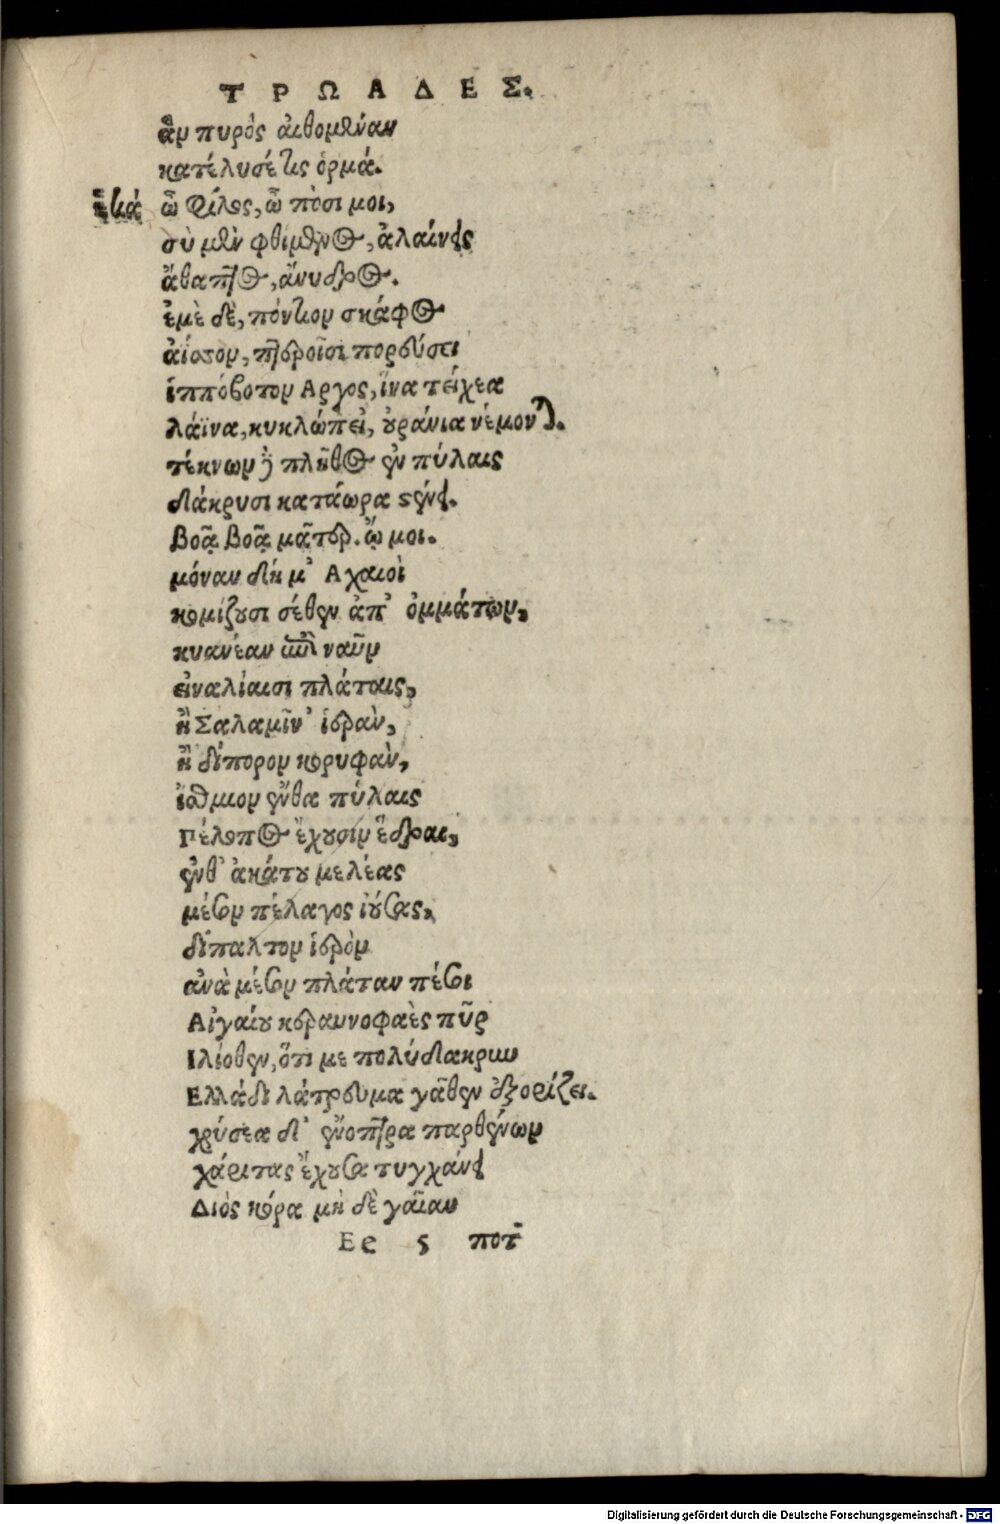 ΤΡΩΑΔΕΣ.
ἂν πυρὸς αἰθομέναν
κατέλυσέ τις ὁρμά.
ἑκά ὦ φίλος, ὦ πόσι μοι,
σὺ μὲν φθίμενος, ἀλαίνεις
ἄθαπτος, ἄνυδρος.
ἐμὲ δὲ, πόντιον σκάφος
ἀίσσον, πτεροῖσι πορεύσει
ἱππόβοτον Αργος, ἵνα τείχεα
λάϊνα, κυκλώπει, οὐράνια νέμονται.
τέκνων δὲ πλῆθος ἐν πύλαις
δάκρυσι κατάωρα στένει.
βοᾷ βοᾷ μᾶτερ. ᾤ μοι.
μόναν δή μ' Αχαιοὶ
κομίζουσι σέθεν ἀπ' ὀμμάτων,
κυανέαν ἐπὶ ναῦν
εἰναλίαισι πλάταις,
ἢ Σαλαμῖν' ἱερὰν,
ἢ δίπορον κορυφὰν,
ἴσθμιον ἔνθα πύλαις
Πέλοπος ἔχουσιν ἕδραι,
ἔνθ' ἀκάτου μελέας
μέσον πέλαγος ἰούσας,
δίπαλτον ἱερὸν
ἀνὰ μέσον πλάταν πέσοι
Αἰγαίου κεραυνοφαὲς πῦρ
Ιλίοθεν, ὅτι με πολύδακρυν
Ελλάδι λάτρευμα γᾶθεν ἐξορίζει.
χρύσεα δ' ἔνοπτρα παρθένων
χάριτας ἔχουσα τυγχάνει
Διὸς κόρα μὴ δὲ γαῖαν
Ee ς ποτ'
Digitalisierung gefördert durch die Deutsche Forschungsgemeinschaft - DFG